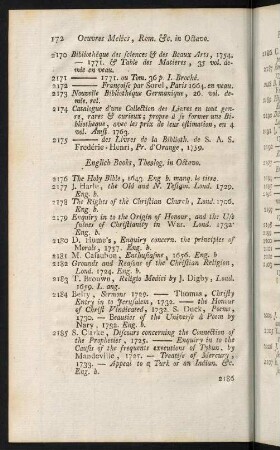 172 Oeuvres Melées, Rom. &c. in Octavo.
2170 Bibliothèque des sciences & des Beaux Arts, 1754.
— 1771. & Table des Matieres, 35 vol. de-
mis en veau.
2171 ——— 1771. ou Tom. 36 p. I. Broché.
2172 ——— Françoise par Sorel, Paris 1664. en veau.
2173 Nouvelle Bibliothèque Germanique, 26. vol. de-
mis. rel.
2174 Catalogue d'une Collection des Livres en tout gen-
re, rares & curieux; propre à se former une Bi-
bliothèque, avec les prix de leur estimation, en 4
vol. Amst. 1763.
2175 ——— des Livres de la Biblioth. de S. A. S.
Frederic-Henri, Pr. d'Orange, 1759.
English Books, Theolog. in Octavo.
2176 The Holy Bible, 1647. Eng. b. manq. le titre.
2177 J. Harle, the Old and N. Testam. Lond. 1729.
Eng. b.
2178 The Rights of the Christian Church, Lond. 1706.
Eng. b.
2179 Enquiry in to the Origin of Honour, and the Us
fulnes of Christianity in War. Lond. 1732.
Eng. b.
2180 D. Hume's, Enquiry concern. the principles of
Morals, 1757. Eng. b.
2181 M. Casaubon, Enthusiasme, 1656. Eng. b.
2182 Grounds and Reasons of the Christian Religion,
Lond. 1724. Eng. b.
2183 T. Brouwn, Religio Medici by J. Digby, Lond.
1659. L. ang.
2184 Betty, Sermons 1729. — Thomas, Christs
Entry in to Jerusalem, 1732. — the Honour
of Christ Vindicated, 1732. S. Duck, Poems,
1730. — Beauties of the Universe a Poem by
Nary, 1732. Eng. b.
2185 S. Clarke, Discours concerning the Connection of
the Prophecies, 1725. — Enquiry in to the
Causes of the frequent executions of Tyburn, by
Mandeville, 1725. — Treatise of Mercury,
1733. — Appeal to a Turk or an Indian. &c.
Eng. b.
2186